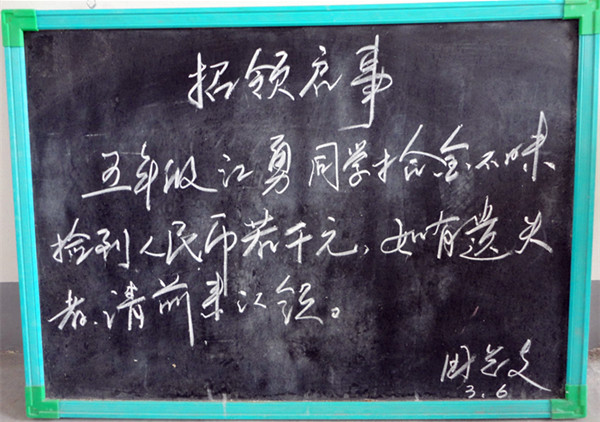 招领启事
五年级江勇同学拾金不昧
捡到人民币若干元，如有遗失
者、请前来认领。
3.6